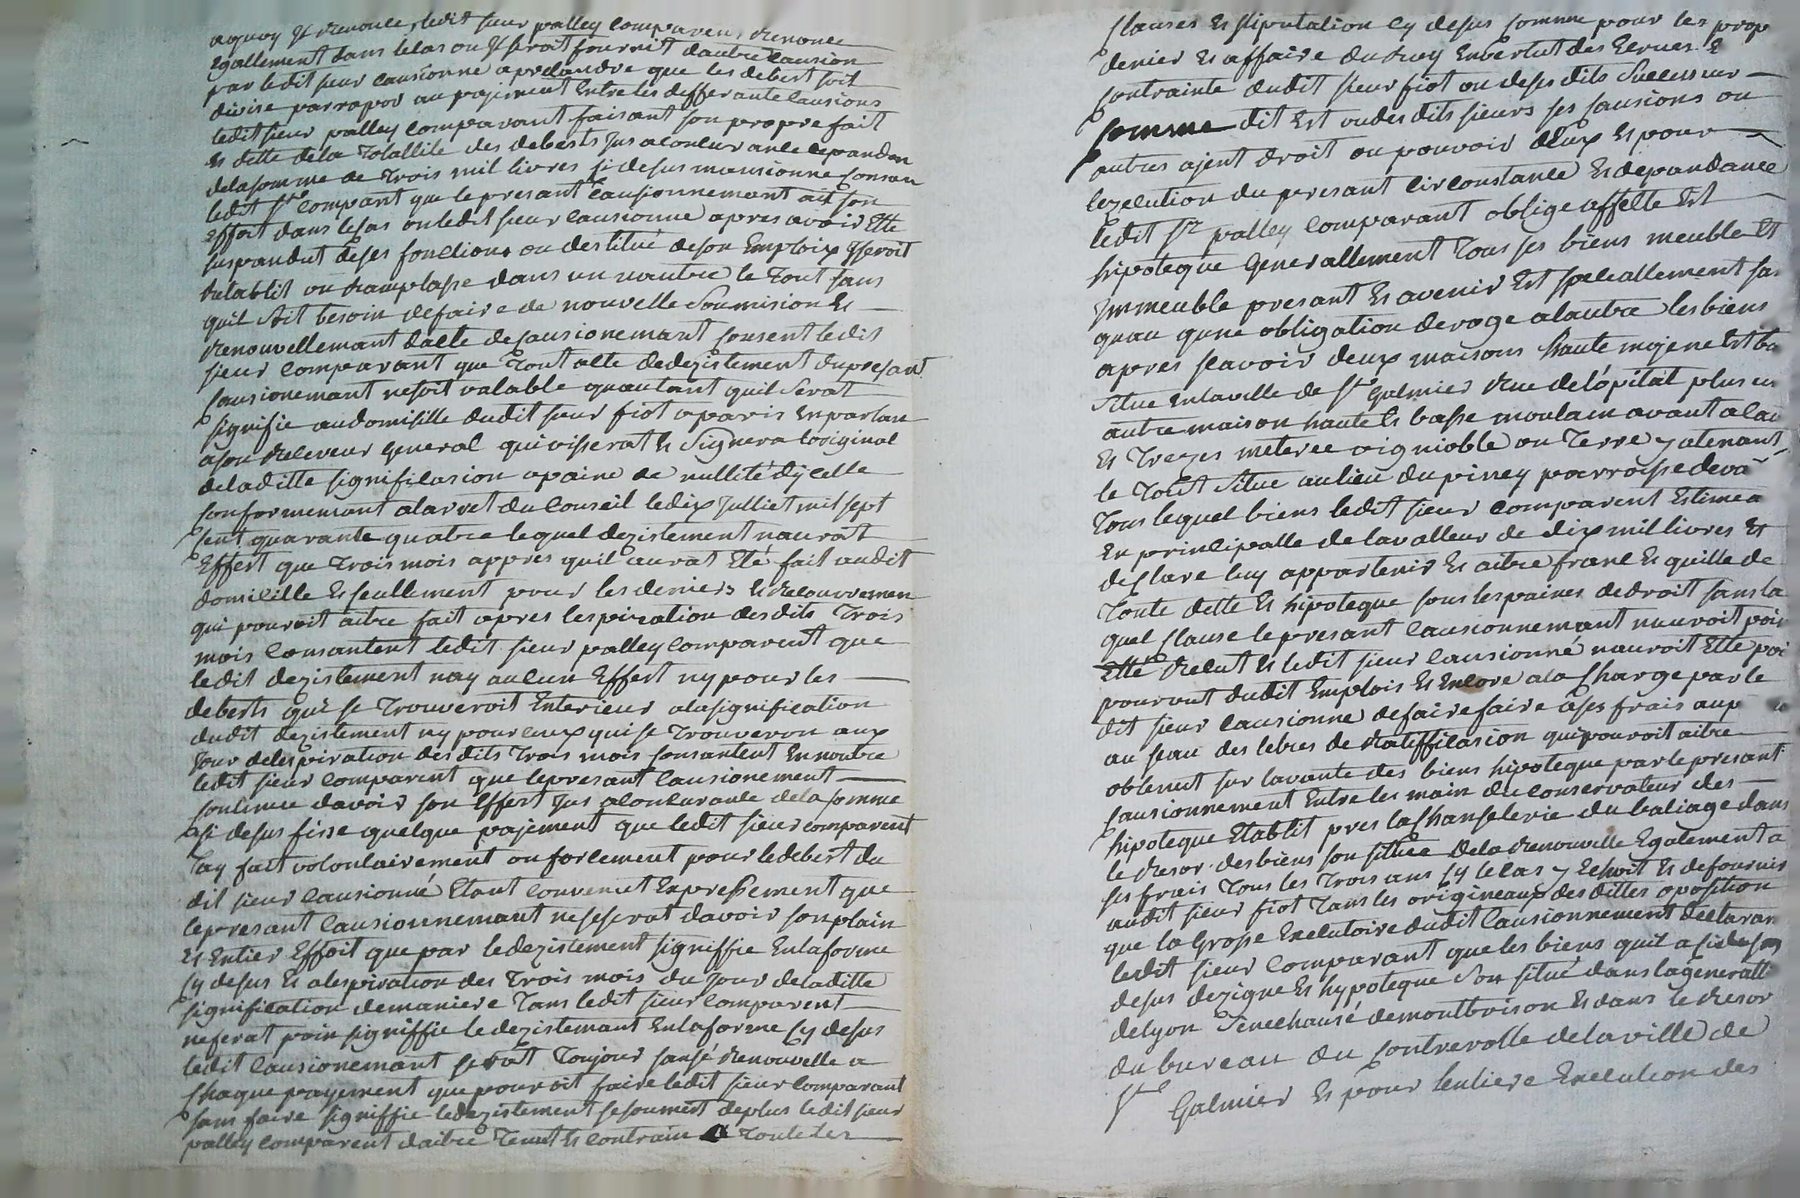 aquoy Il Renonce, ledit sieur palley comparens Renonce
Egallement dans lecas ou Il seroit fournit dautre Causion
par ledit sieur causionne apretandre que les debert soit
divise par rapor au pajement Entre les differante Causions
ledit sieur palley comparant faisant son propre fait
Et dette dela Totallite des deberts Jus aconcur ance
delasomme de Trois mil livres si desus mansionne consan
ledit sr comparant que le presant Causionnemant ait son
effait dans lecas ou ledit sieur causionne apres avoir Ette
suspandut deses fonctions ou destitué deson Emploix seroit
Retablit ou Ramplasse dans un nautre le Tout sans
quil soit besoin defaire de nouvelle Soumision Et
Renouvellemant dacte decausionemant consent ledit
sieur comparant que tout acte dedezistement dupresant
Causionemant nesoit valable quautant quil Serat
signifie audomisille dudit sieur fiot aparis En parlan
ason Receveur General qui visserat Et Signera loriginal
deladitte signification apaine de nullité dicelle
conformement alarret du Conseil ledix Julliet mil sept
sent quarante quatre lequel dezistement naurat
Effert que Trois mois appres quil aurat Eté fait audit
domicille Et seullement pour les deniers Et Recouvremen
qui pouroit aitre fait apres lespiration desdits Trois
mois Consantent ledit sieur palley comparent que
ledit dezistement nay aucun Effert ny pour les
deberts qui se Trouveroit Enterieur alasignification
dudit dezistement ny pour ceux qui se Trouveron aux
Jour delespiration desdits Trois mois consantent Ennoutre
ledit sieur comparent que lepresant Causionement
continue davoir son Effert Jus aconcurance dela somme
si desus fisse quelque pajement que ledit sieur comparent
lay fait volontairement ou forcement pour ledebert du
dit sieur causionné Etant Convenut Expressement que
lepresant Causionnemant nesesserat davoir son plain
Et Entier Effait que par ledezistement signiffie Enlaforme
sy desus Et alespiration des Trois mois du Jour deladitte
signification demaniere Tans ledit sieur comparent
neferat poin signiffie ledezistemant Enlaforme sy desus
ledit Causionemant serat Toujour sansé Renouvelle a
Chaque payement que pouroit faire ledit sieur comparant
sans faire signiffie ledezistement sesoumest deplus ledit sieur
palley comparent daitre Tenut Et contrain a Toutes les
Clauses Et stiputation Cy desus comme pour les prop
denier Et affaire du Roy Enbertut des
contrainte dudit sieur fiot ou deses dits Successeur
comme dit Est oudes dits sieurs ses causions ou
autres ajent droit ou pouvoir deux Et pour
lexecution du presant Circonstance Et depandance
ledit sr palley comparant oblige affette Est
hipoteque Generallement Tous ses biens meuble Et
Immeuble presant Et avenir Est specallement san
quau qune obligation deroge alautre les biens
apres seavoir deux maisons haute mojene Est ba
situe Enlaville de st Galmier Rue delópitat plus un
autre maison haute Et basse moulain avant alau
Et Trezes meteree vignioble ou Terre y atenant
le Tout Situe aulieu du piney parroisse deva
Tous lequel biens ledit sieur comparent Estime a
En principalle de lavalleur de dix mil livres Et
declare luy appartenir Et aitre franc Et quille de
Toute dette Et hipoteque sous lespaines dedroit sans la
quel Clause lepresant Causionnemant nauroit poin
Etté Recut Et ledit sieur Causionné nauroit Etté poi
pourvut dudit Emplois Et Encore ala Charge par le
dit sieur Causionne defaire faire ases frais aup
au seau des letres de Ratiffication quipouroit aitre
obtenut sur lavante des biens hipoteque par le presant
Causionnement Entre les main du Conservateur des
hipoteque Etablit pres laChanselerie du baliage dans
le Resor des biens son sittue dela Renouvelle Egalement a
ses frais Tous les Trois ans sy le cas y Echoit Et defournir
audit sieur fiot Tans les origineaux desdittes oposition
que la Grosse Executoire dudit Causionnement Declaran
ledit sieur Comparant que les biens quil a
desus dezigne Et hypoteque Son situé dans lageneralli
delyon Senechausé demontbrison Et dans le Resor
du bureau du Controrolle delaville de
st Galmier Et pour lentiere Execution des